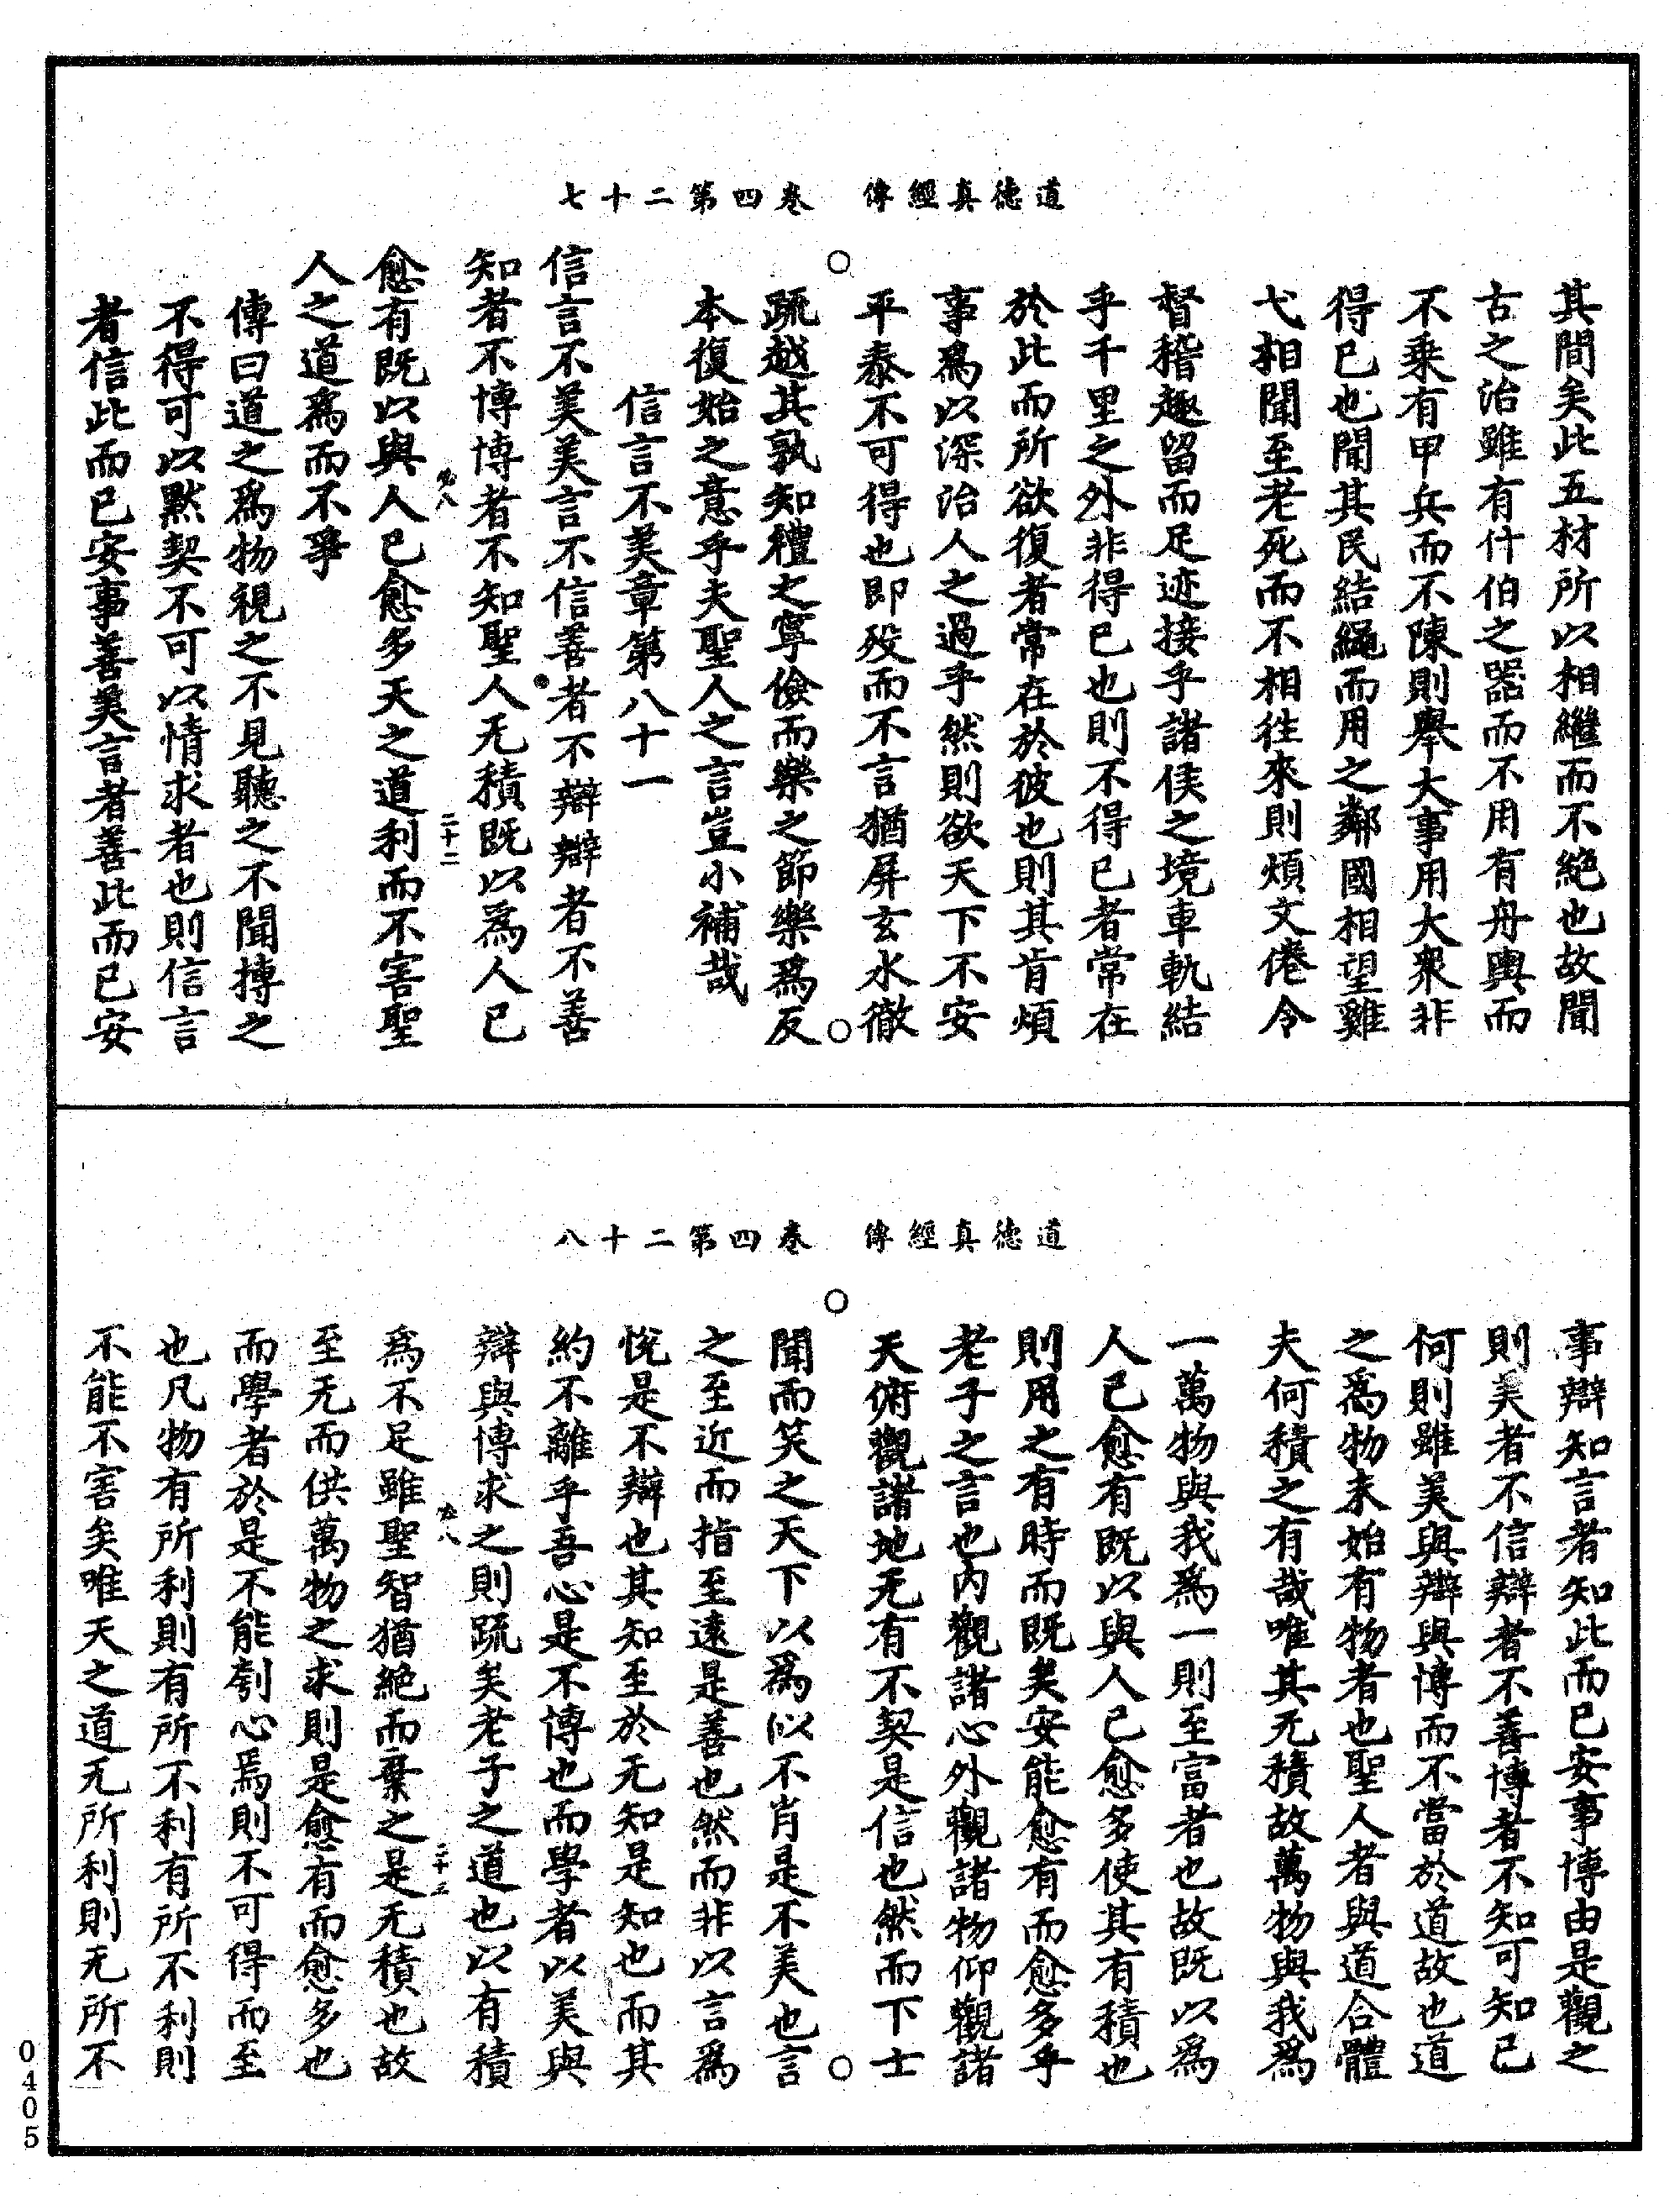 道德真經傳　卷四第二十七
其間矣此五材所以相繼而不絕也故聞
古之治雖有什伯之器而不用有舟輿而
不乘有甲兵而不陳則舉大事用大衆非
得已也聞其民結繩而用之鄰國相望雞
犬相聞至老死而不相往來則煩文倦令
督稽趣留而足迹接乎諸侯之境車軌結
乎千里之外非得已也則不得已者常在
於此而所欲復者常在於彼也則其肯煩
事爲以深治人之過乎然則欲天下不安
平泰不可得也即歿而不言猶屏玄水徹
疏越其孰知禮之寧儉而樂之節樂爲反
本復始之意乎夫聖人之言豈小補哉
信言不美章第八十一
信言不美美言不信善者不辯辯者不善
知者不博博者不知聖人无積既以爲人已
愈有既以與人已愈多天之道利而不害聖
二十二
人之道爲而不爭
傳曰道之爲物視之不見聽之不聞搏之
不得可以默契不可以情求者也則信言
者信此而已安事善美言者善此而已安
道德真經傳　卷四第二十八
事辯知言者知此而已安事博由是觀之
則美者不信辯者不善博者不知可知已
何則雖美與辯與博而不當於道故也道
之爲物未始有物者也聖人者與道合體
夫何積之有哉唯其无積故萬物與我爲
一萬物與我爲一則至富者也故既以爲
人已愈有既以與人已愈多使其有積也
則用之有時而既矣安能愈有而愈多乎
老子之言也內觀諸心外觀諸物仰觀諸
天俯觀諸地无有不契是信也然而下士
聞而笑之天下以爲似不肖是不美也言
之至近而指至遠是善也然而非以言爲
悅是不辯也其知至於无知是知也而其
約不離乎吾心是不博也而學者以美與
辯與博求之則疏矣老子之道也以有積
爲不足雖聖智猶絕而棄之是无積也故
二十三
至无而供萬物之求則是愈有而愈多也
而學者於是不能刳心焉則不可得而至
也凡物有所利則有所不利有所不利則
不能不害矣唯天之道无所利則无所不
0405